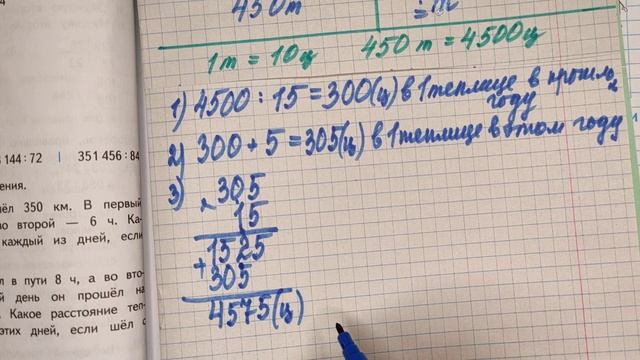 450 т
1 т = 10 ц 450 т = 4500 ц
1) 4500 : 15 = 300 (ц) в 1 теплице в прошл.
году
2) 300 + 5 = 305 (ц) в 1 теплице в этом году
3) × 305
15
+ 1525
305
4575 (ц)
144 : 72 | 351 456 : 84
ения.
ёл 350 км. В первый
во второй — 6 ч. Ка-
каждый из дней, если
л в пути 8 ч, а во вто-
й день он прошёл на
. Какое расстояние теп-
этих дней, если шёл с